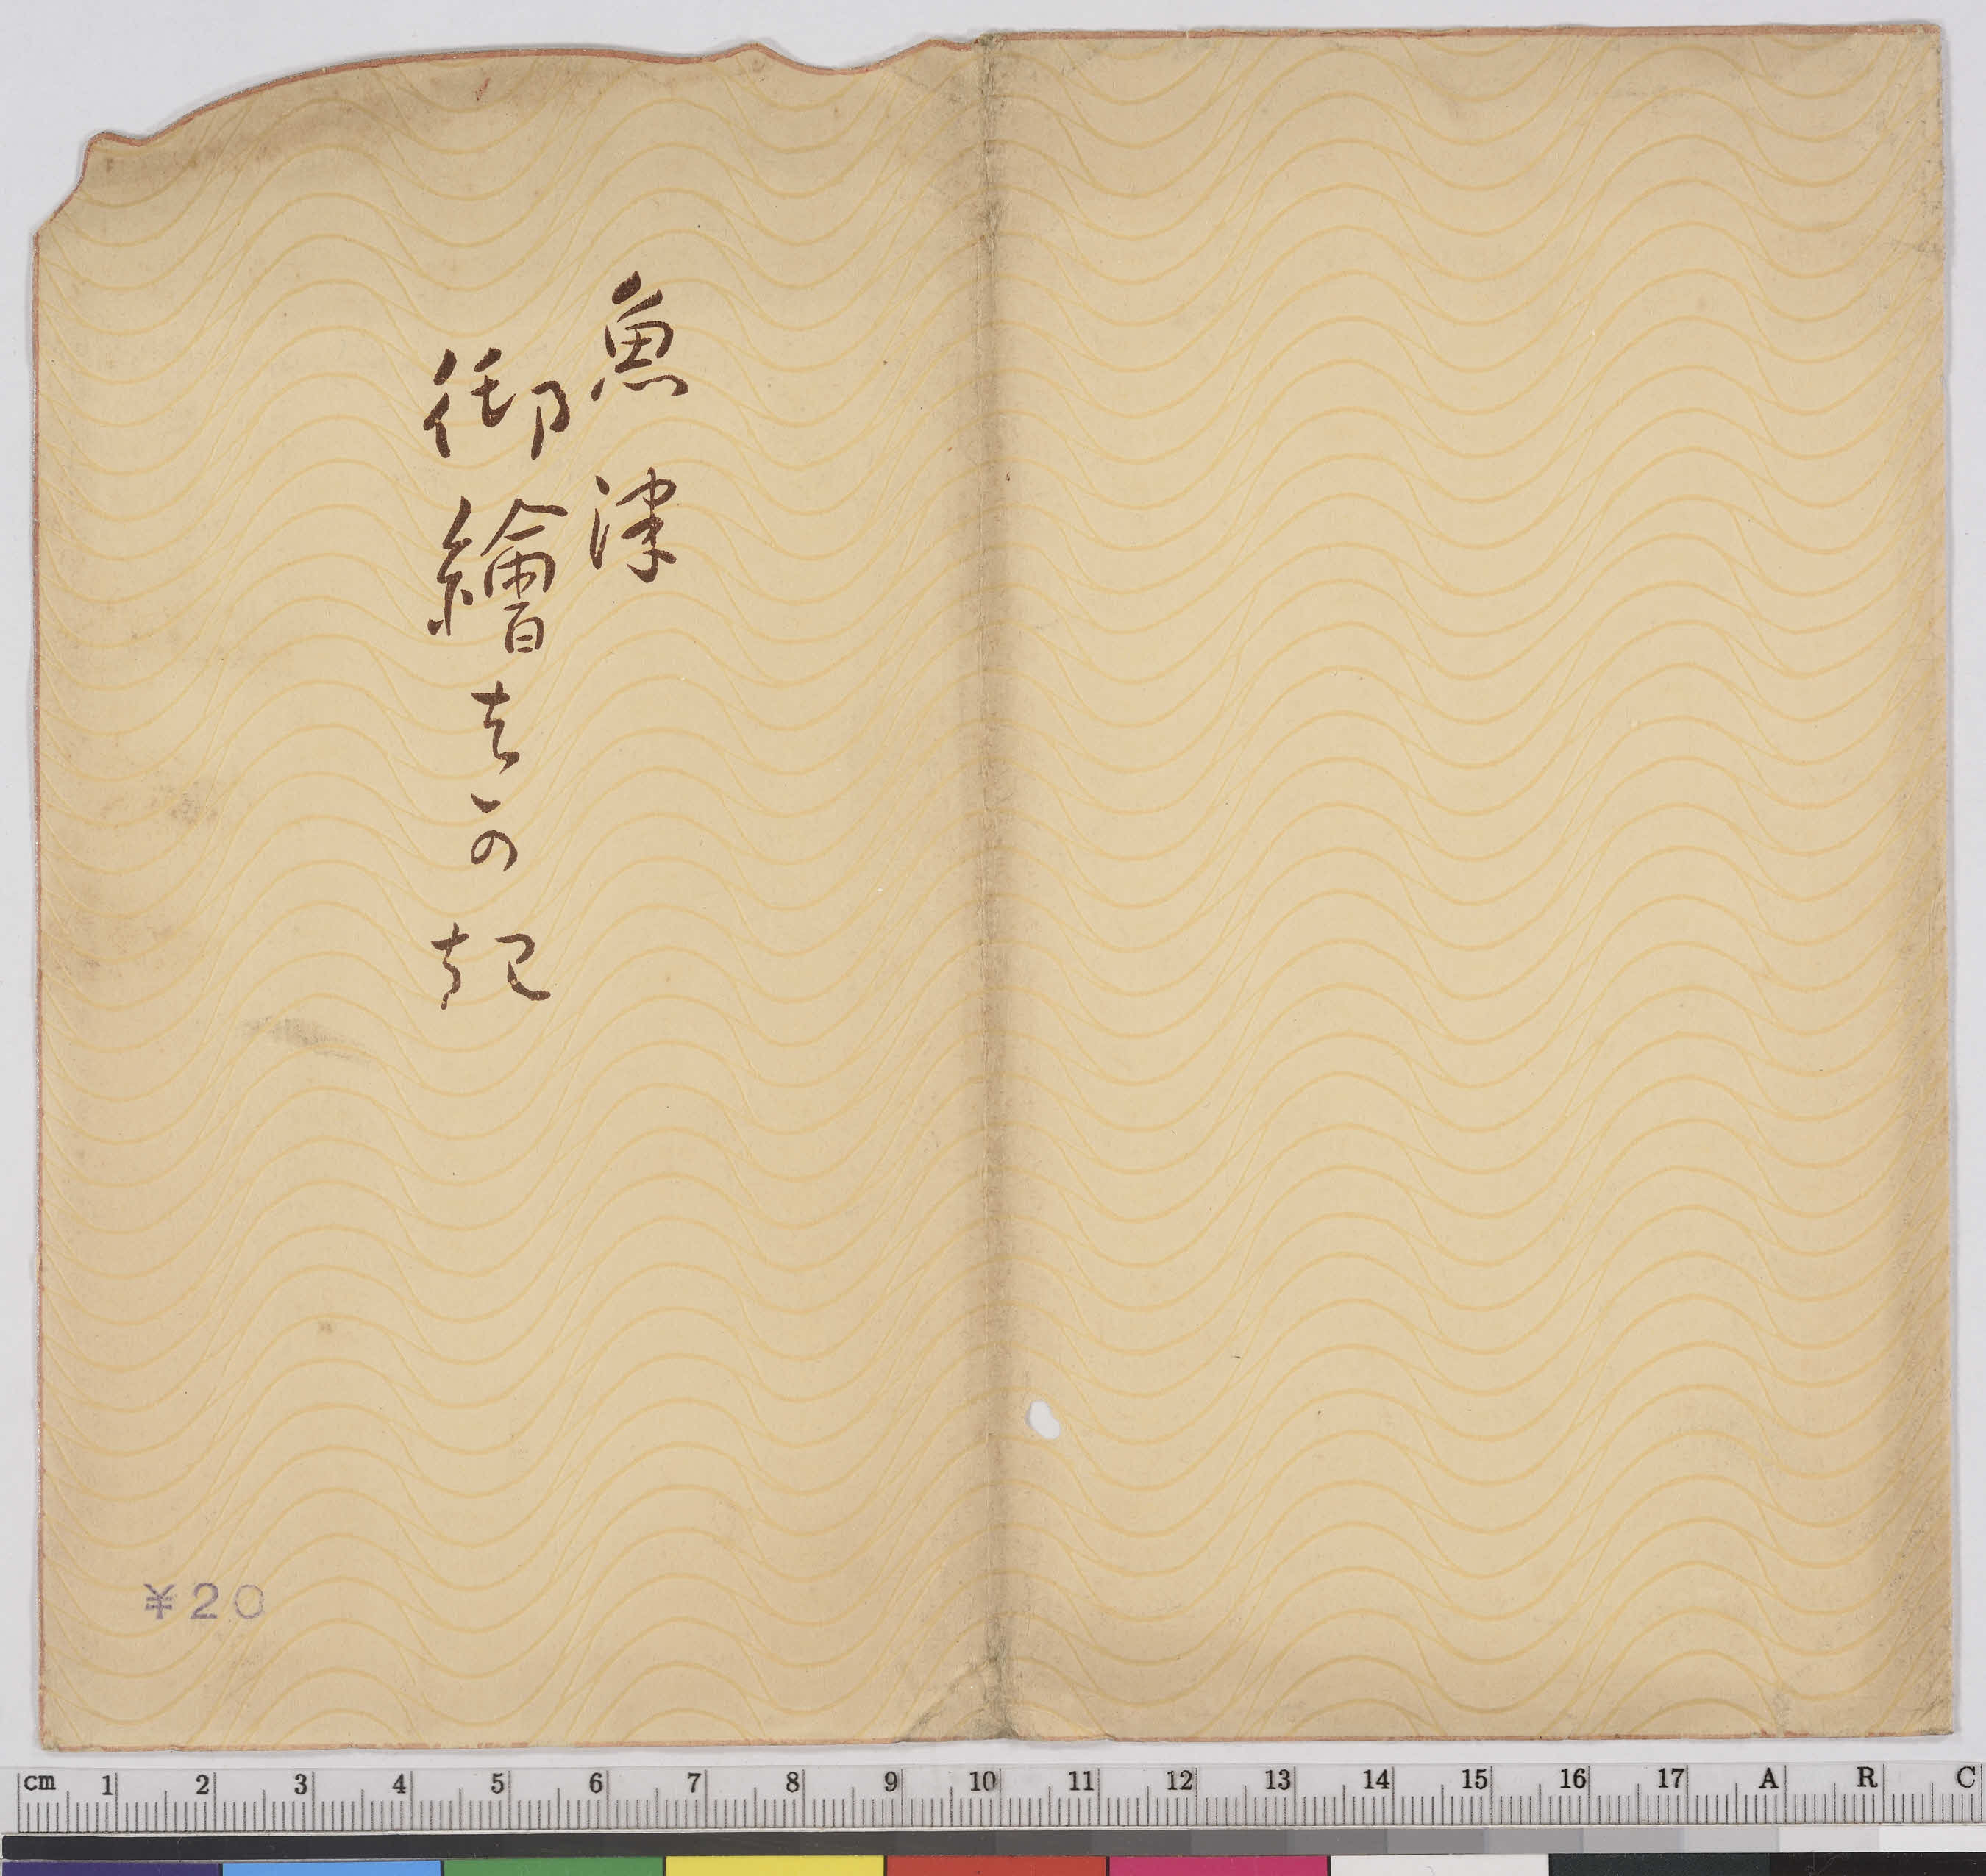 魚津
御繪者可起
¥20
cm 1 2 3 4 5 6 7 8 9 10 11 12 13 14 15 16 17 A R C